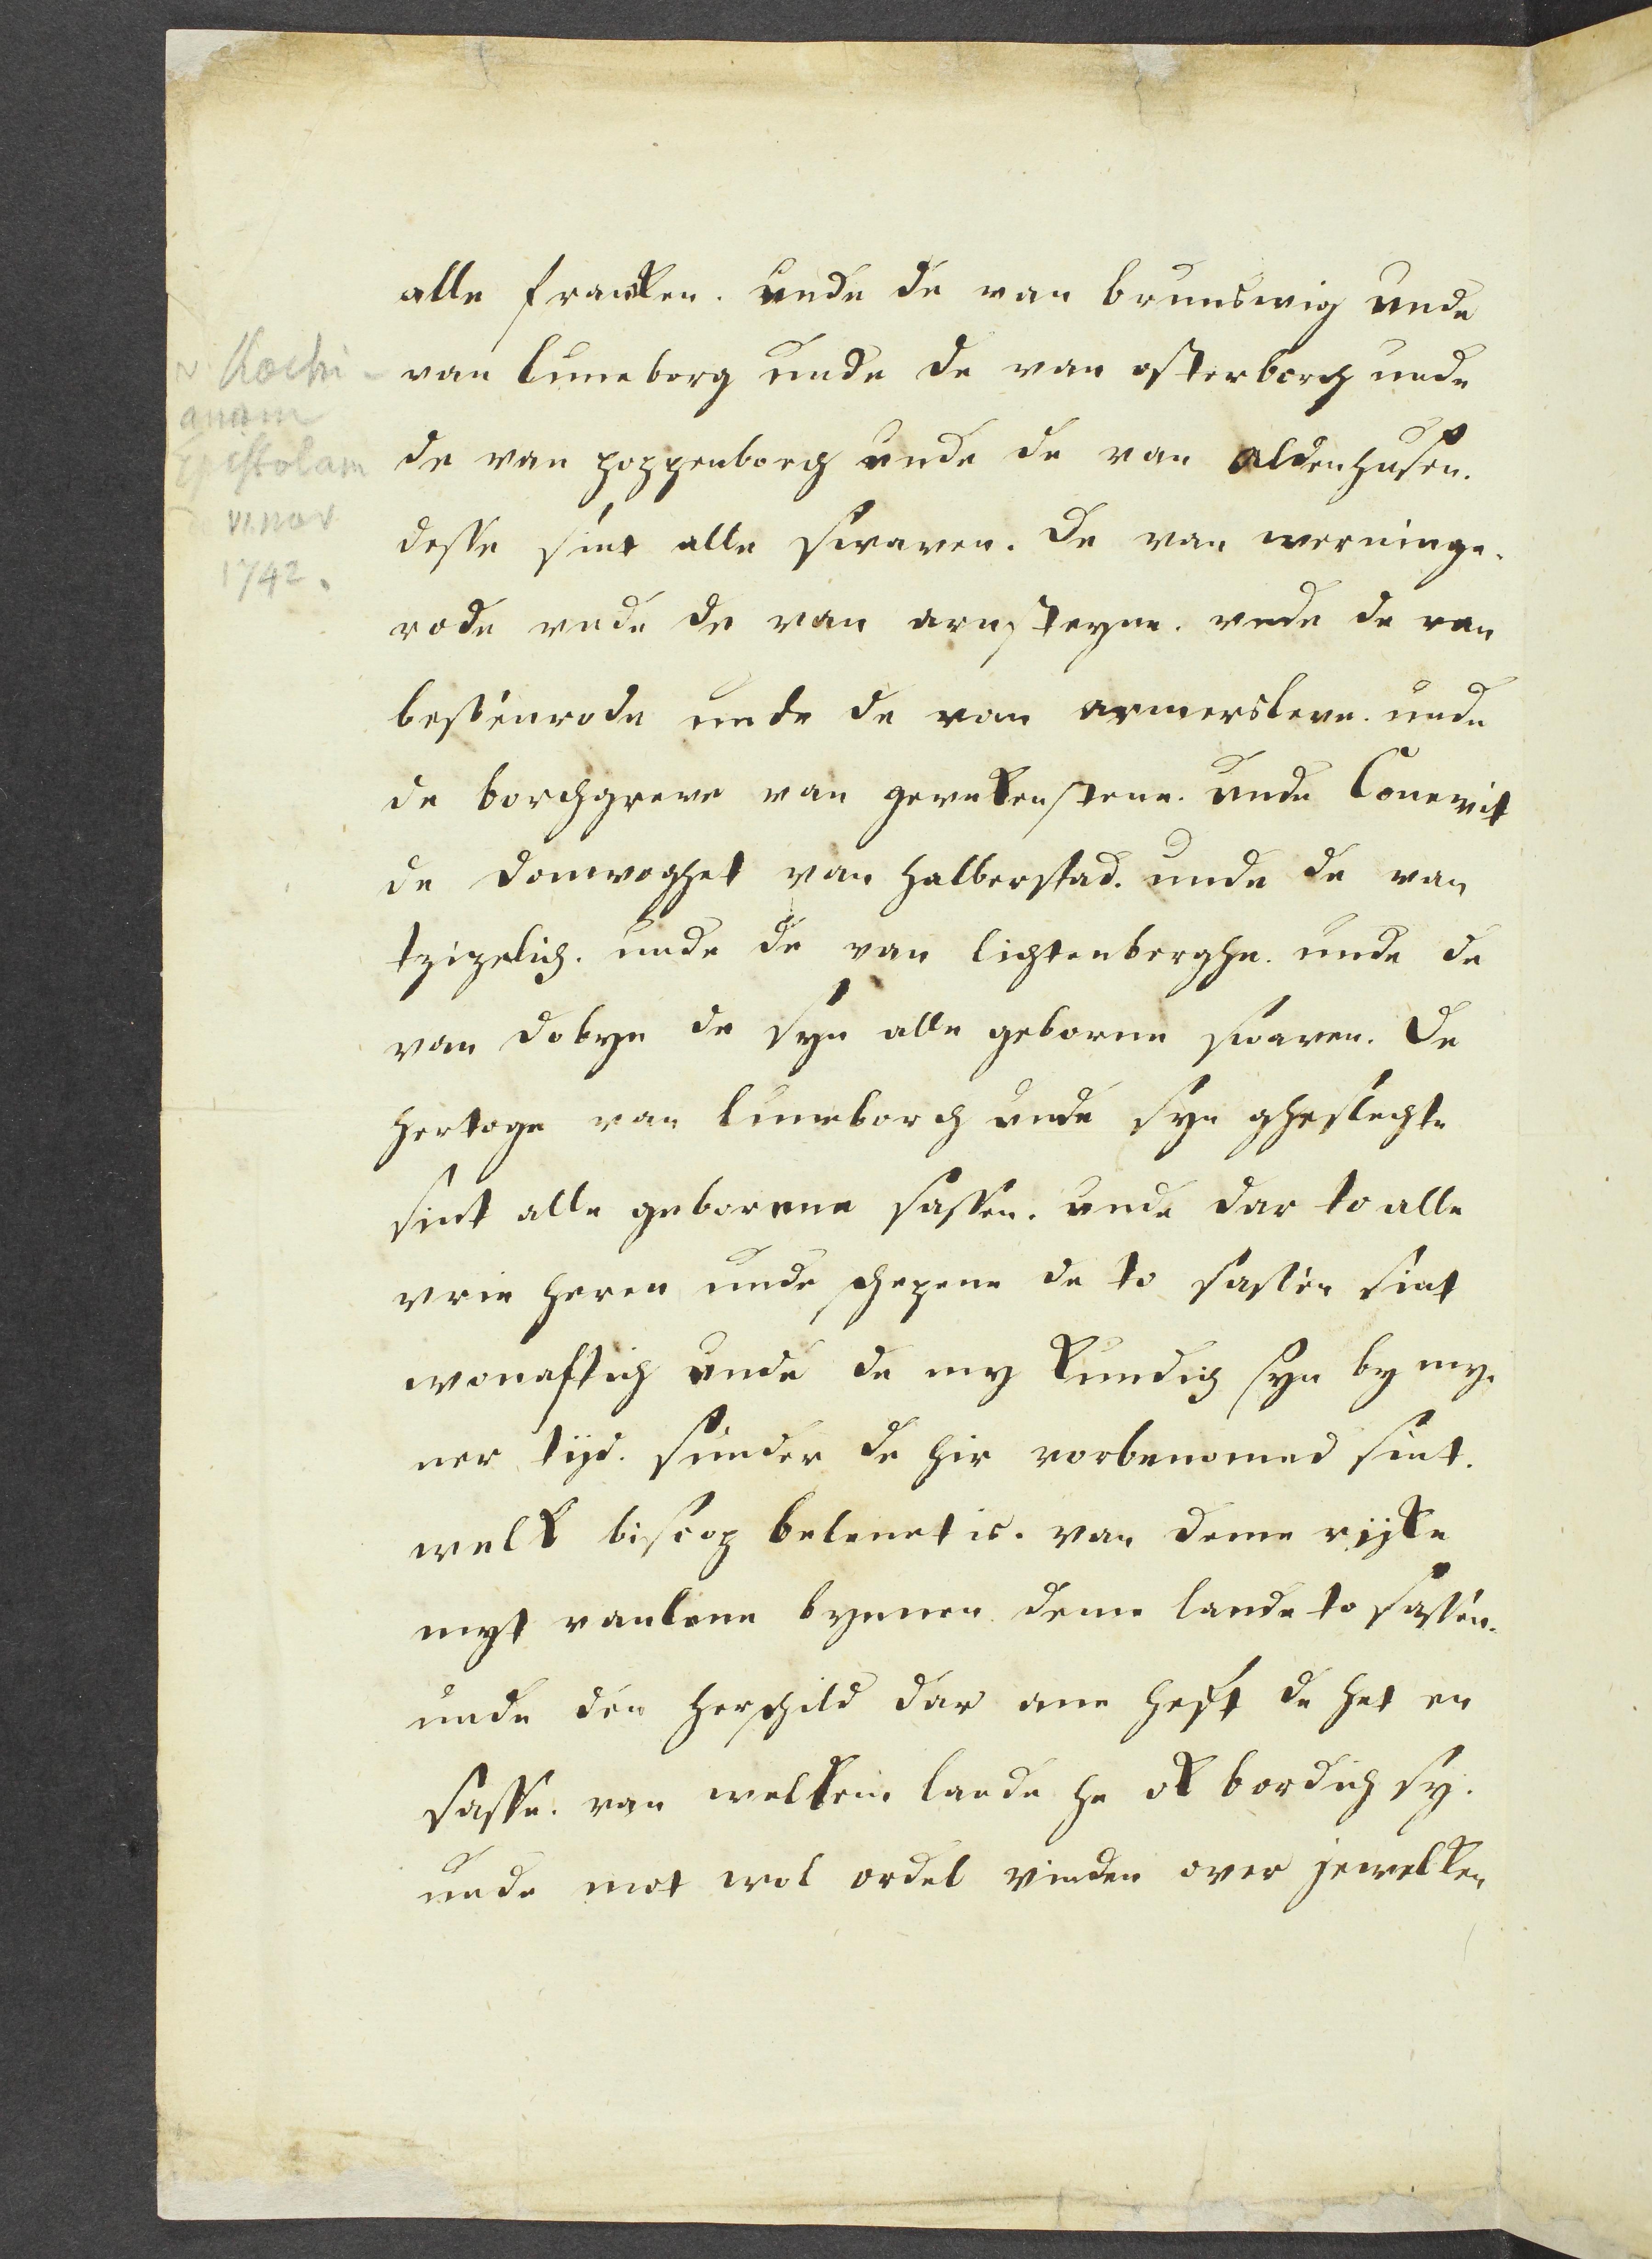 alle franken. unde de van brunswig unde
van luneborg unde de van osterborch unde
de van poppenborch unde de van Aldenhusen.
desse sint alle swaven. De van werninge-
rode unde de van arnsteyne. unde de van
bessenrode unde de van armersleve. unde
de borchgreve van gevekenstene. unde Conewit
de domvoghet van halberstad. unde de van
tzizelich. unde de van lichtenberghe. unde de
van dobyn de syn alle geborne swaven. De
hertoge van luneborch unde syn gheslechte
sint alle geborene sassen. unde dar to alle
vrie heren unde schepene de to sassen sint
wonaftich unde de my kundich syn by my-
ner tijd. sunder de hir vorbenomed sint.
welk biscop belenet is. van deme rijke
myt vanlene bynnen deme lande to sassen.
unde den herschild dar ane heft de het en
sasse. van welkem lande he ok bordich sy.
unde mot wol ordel vinden over jewelken
v. Kochi-
anam
Epistolam
de VI. nov
1742.